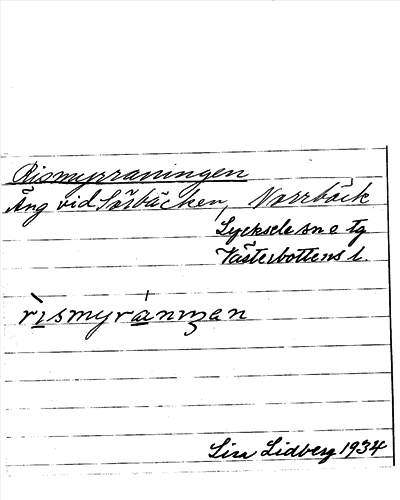 Rismyrraningen
Äng vid Sörbäcken, Norrbäck
Lycksele sn o tg
Västerbottens l.
rìsmyŕanıŋen
Lisa Lidberg 1934